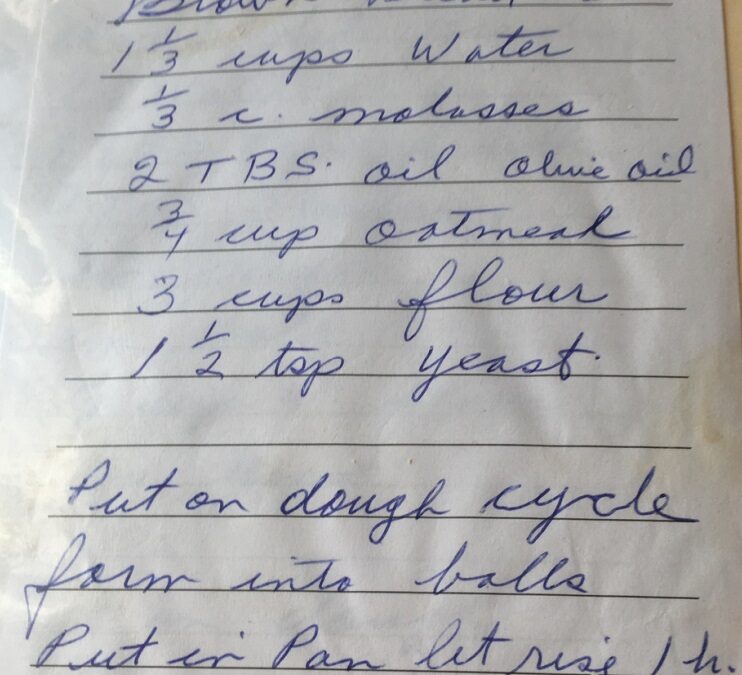 Brown Bread
1 1/3 cups Water
1/3 c. molasses
2 TBS. oil olive oil
3/4 cup oatmeal
3 cups flour
1 1/2 tsp yeast.
Put on dough cycle
form into balls
Put in Pan let rise 1 h.